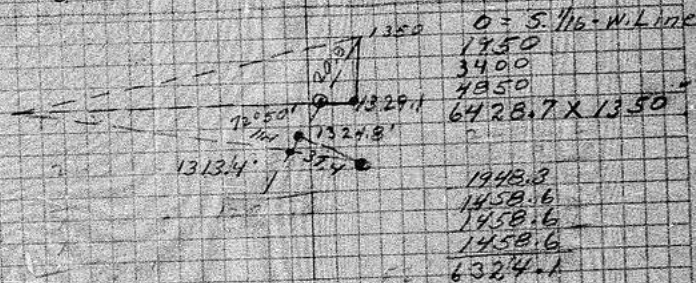 1350
20.9
1329.1
72°50'
1324.8'
1313.4'
37.4
0 = S. 1/16 - W. Line
1950
3400
4850
6428.7 X 1350
1948.3
1458.6
1458.6
1458.6
6324.1